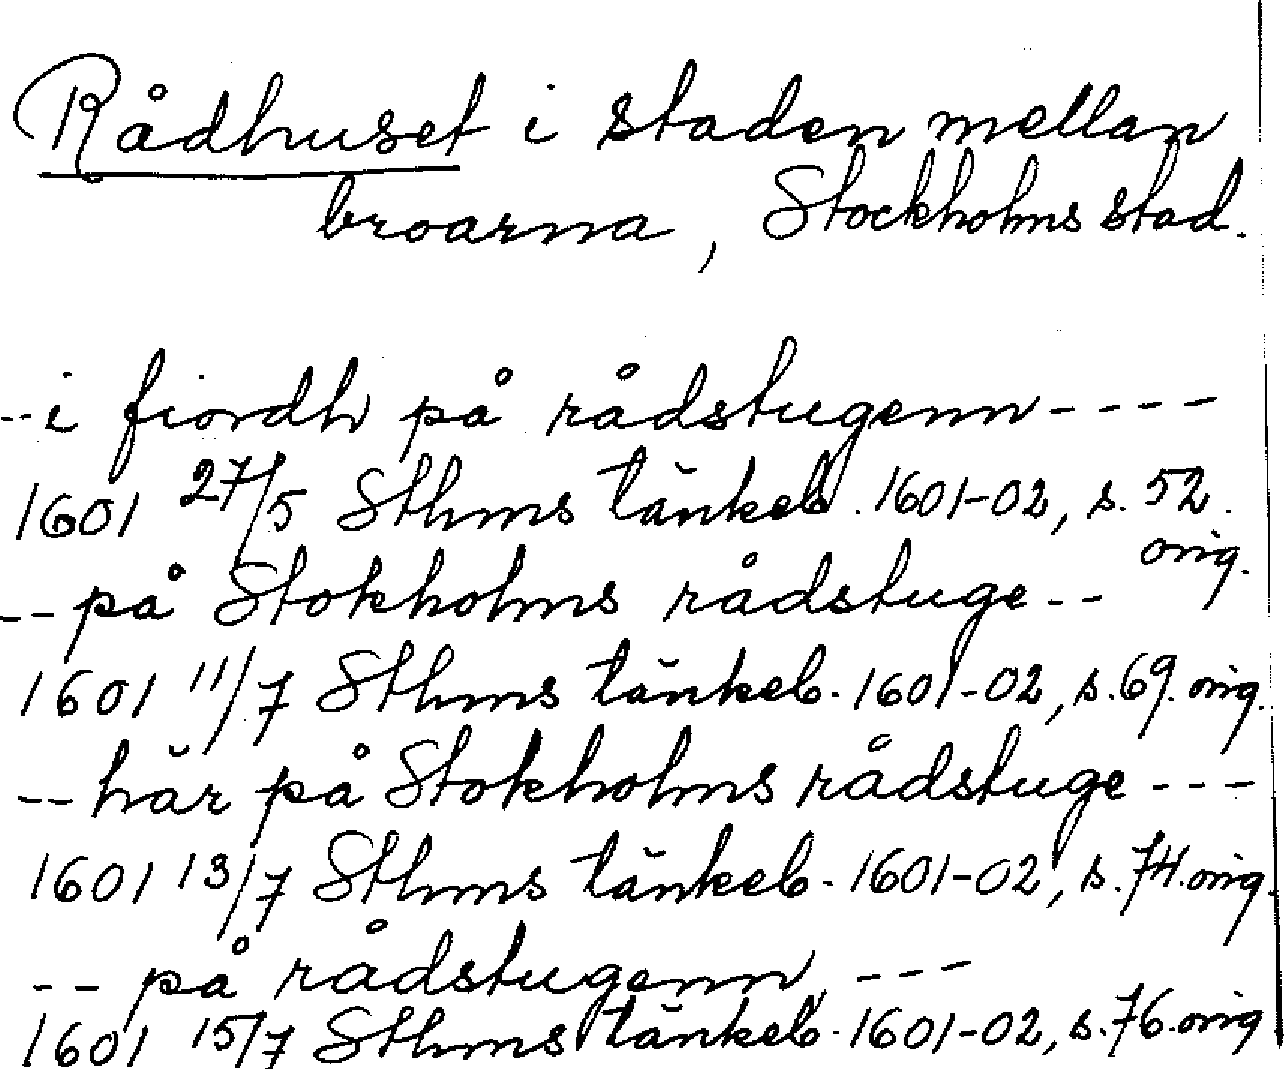 Rådhuset i staden mellan
broarna, Stockholms stad.
--i fiordh på rådstugenn----
1601 27/5 Sthms tänkeb. 1601-02, s. 52.
orig.
--på Stokholms rådstuge--
1601 11/7 Sthms tänkeb. 1601-02, s. 69. orig.
--här på Stokholms rådstuge---
1601 13/7 Sthms tänkeb. 1601-02, s. 74. orig.
-- på rådstugenn ---
1601 15/7 Sthms tänkeb. 1601-02, s. 76. orig